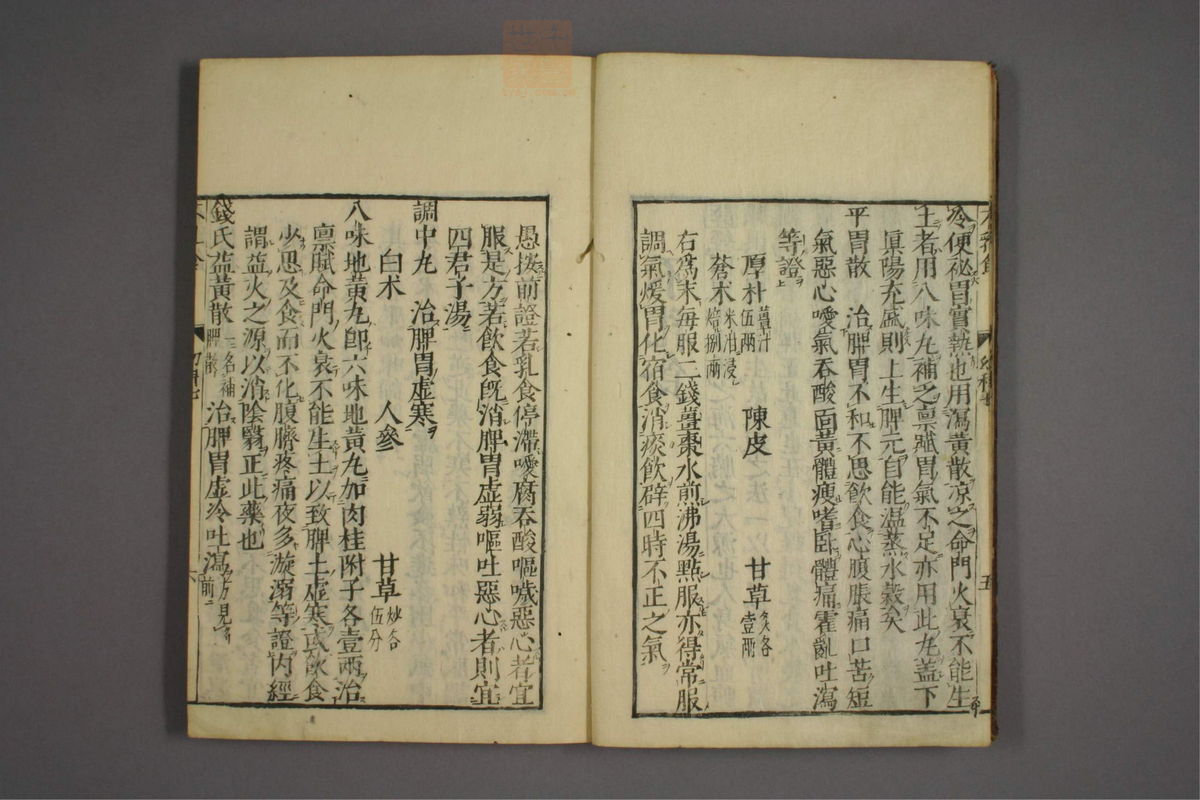 冷便祕胃實熱也用瀉黃散凉之命門火衰不能生
土者用八味丸補之禀賦胃氣不足亦用此丸盖下
眞陽充盛則上生脾元自能温蒸水穀矣
平胃散 治脾胃不和不思飲食心腹脹痛口苦短
氣惡心噯氣吞酸面黃體瘦嗜卧體痛霍亂吐瀉
等證
厚朴薑汁伍兩 陳皮 甘草炙各壹兩
蒼朮米泔浸焙捌兩
右爲末每服二錢薑棗水煎沸湯點服亦得常服
調氣煖胃化宿食消痰飲辟四時不正之氣
愚按前證若乳食停滯噯腐吞酸嘔噦惡心者宜
服是方若飲食旣消脾胃虛弱嘔吐惡心者則宜
四君子湯
調中丸 治脾胃虛寒
白朮 人參 甘草炒各伍分
八味地黃丸卽六味地黃丸加肉桂附子各壹兩治
禀賦命門火衰不能生土以致脾土虛寒或飲食
少思及食而不化腹臍疼痛夜多漩溺等證內經
謂益火之源以消陰翳正此藥也
錢氏益黃散一名補脾散 治脾胃虛冷吐瀉方見前